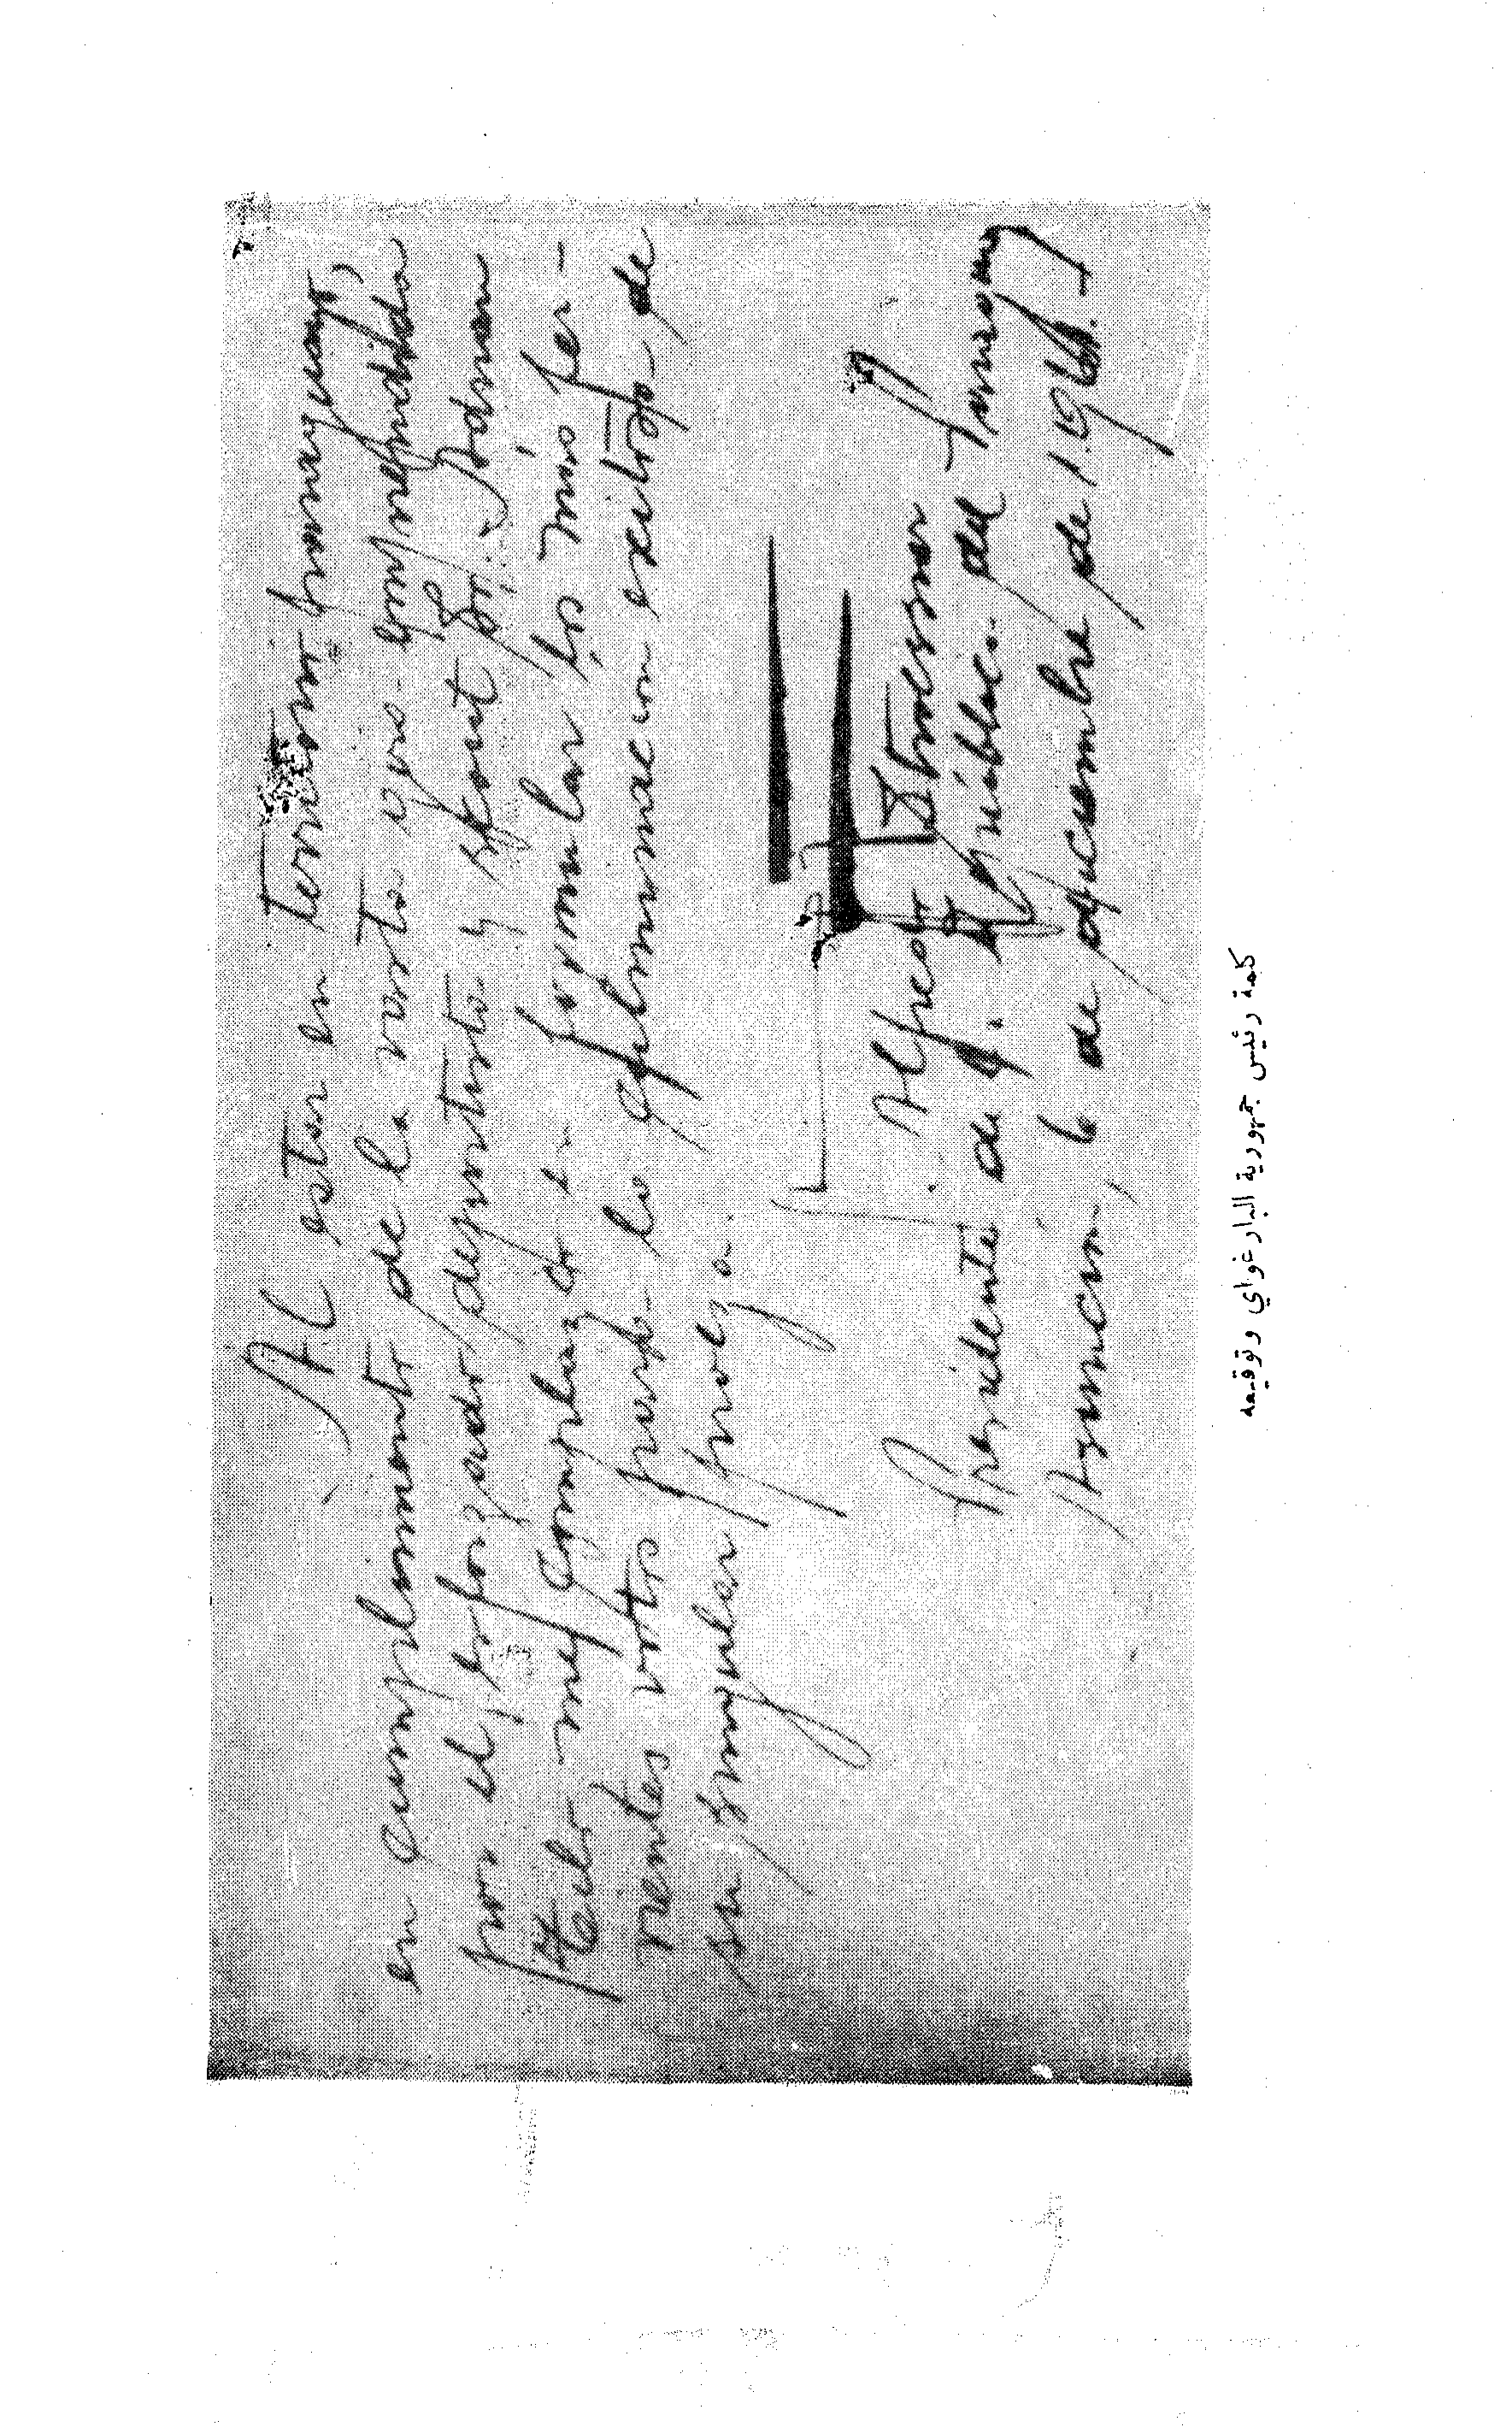 Al estar en territorio paraguayo,
en cumplimiento de la vasta gira emprendida
por el esforzado deportista y skout Sr. Adnan
me complazco en formular los más fer-
vientes votos por la culminacion exitosa de
su singular proeza.
Alfredo Stroessner
Presidente de la República del Paraguay
Asunción, 6 de diciembre de 1.961.
كلمة رئيس جمهورية البارغواي وتوقيعه